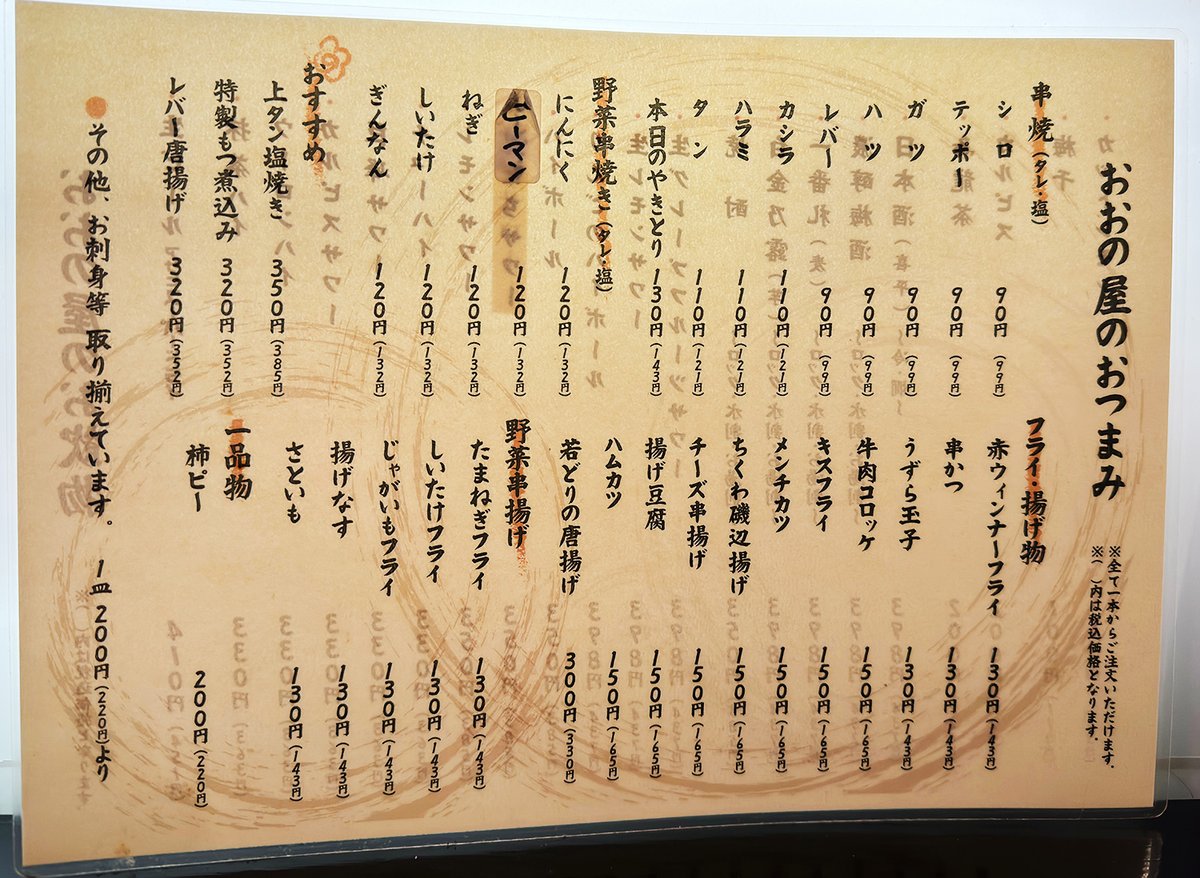 おおの屋のおつまみ
※全て一本からご注文いただけます。
※( )内は税込価格となります。
串焼(タレ・塩)
シロ 90円(99円)
テッポー 90円(99円)
ガツ 90円(99円)
ハツ 90円(99円)
レバー 90円(99円)
カシラ 110円(121円)
ハラミ 110円(121円)
タン 110円(121円)
本日のやきとり 130円(143円)
野菜串焼き(タレ・塩)
にんにく 120円(132円)
ピーマン 120円(132円)
ねぎ 120円(132円)
しいたけ 120円(132円)
ぎんなん 120円(132円)
おすすめ
上タン塩焼き 350円(385円)
特製もつ煮込み 320円(352円)
レバー唐揚げ 320円(352円)
フライ・揚げ物
赤ウィンナーフライ 130円(143円)
串かつ 130円(143円)
うずら玉子 130円(143円)
牛肉コロッケ 150円(165円)
キスフライ 150円(165円)
メンチカツ 150円(165円)
ちくわ磯辺揚げ 150円(165円)
チーズ串揚げ 150円(165円)
揚げ豆腐 150円(165円)
ハムカツ 150円(165円)
若どりの唐揚げ 300円(330円)
野菜串揚げ
たまねぎフライ 130円(143円)
しいたけフライ 130円(143円)
じゃがいもフライ 130円(143円)
揚げなす 130円(143円)
さといも 130円(143円)
一品物
柿ピー 200円(220円)
●その他、お刺身等 取り揃えています。 1皿 200円(220円)より